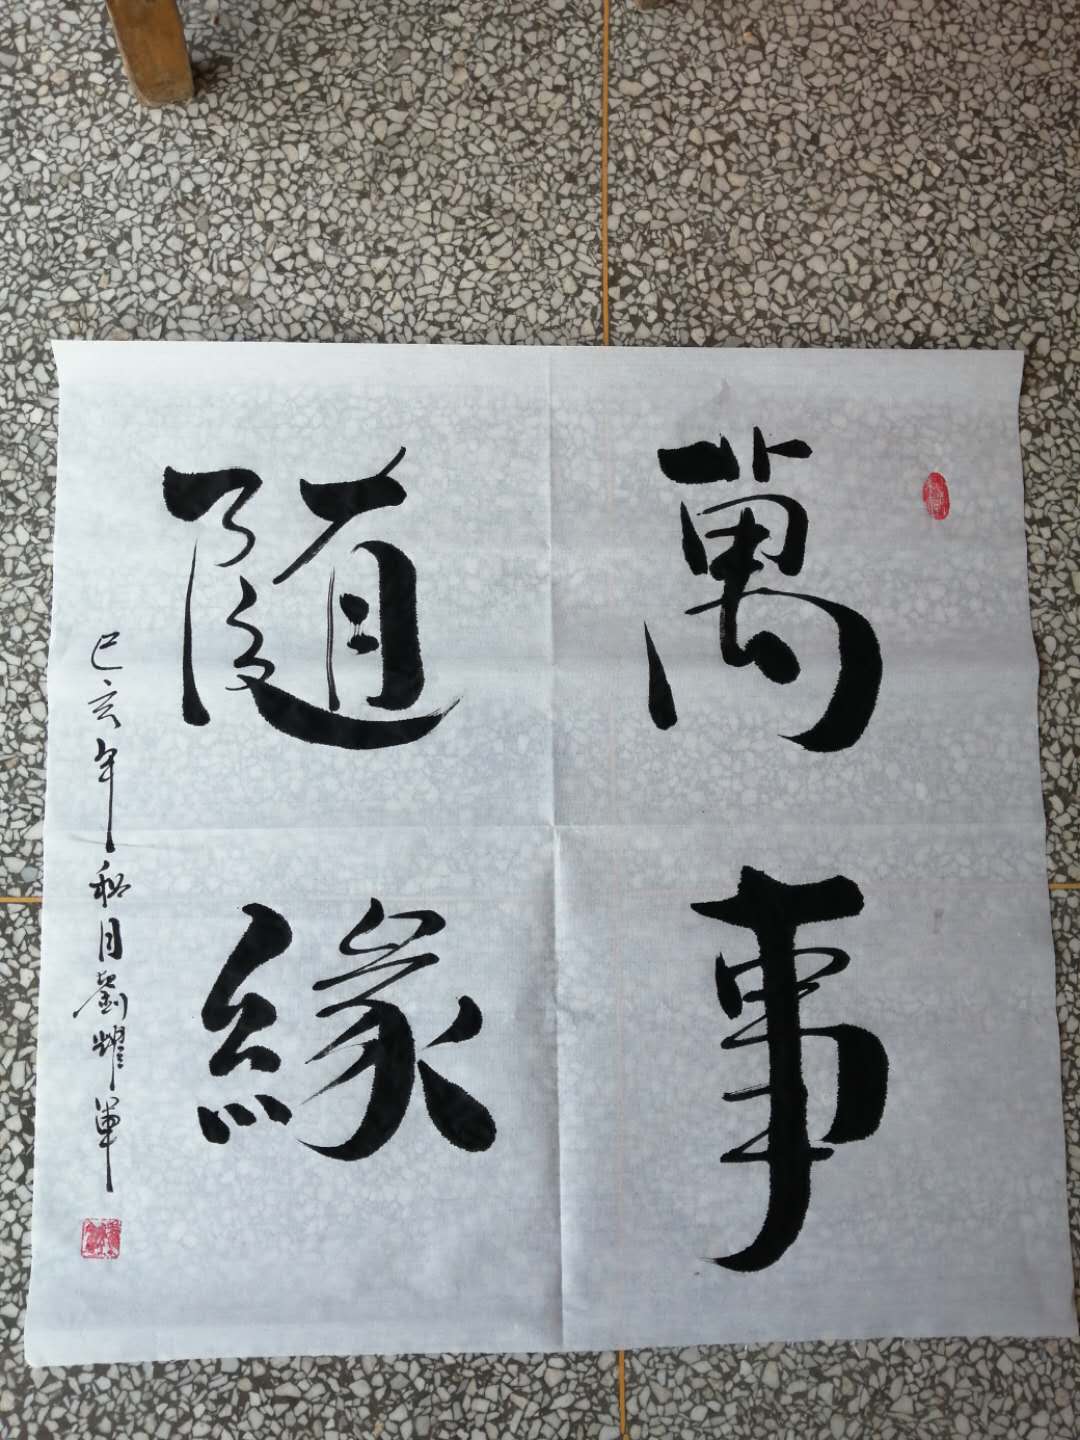 萬事
隨緣
己亥年秋月劉耀軍